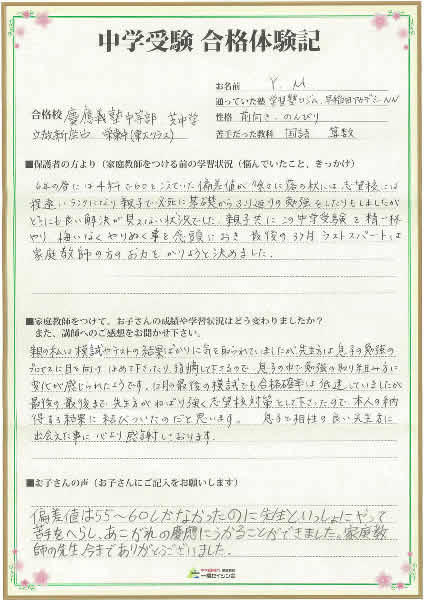 中学受験 合格体験記
お名前 Y.M
通っていた塾 学習塾ロジム、早稲田アカデミーNN
合格校 慶應義塾中等部 芝中学
性格 前向き、のんびり
立教新座中 栄東中(東大クラス)
苦手だった教科 国語 算数
■保護者の方より(家庭教師をつける前の学習状況(悩んでいたこと、きっかけ)
6年の春には4科で60をこえていた偏差値が徐々に落ち秋には志望校には
程遠いランクになり親子で必死に基礎からふり返りの勉強をしたりもしましたが
どうにも良い解決が見えない状況でした。親子共にこの中学受験を精一杯
やり悔いなくやりぬく事を念頭におき最後の3ヶ月ラストスパートは
家庭教師の方のお力をかりようと決めました。
■家庭教師をつけて、お子さんの成績や学習状況はどう変わりましたか?
また、講師へのご感想をお聞かせ下さい。
親の私は模試やテストの結果ばかりに気を取られていましたが先生方は息子の勉強の
プロセスに目を向けほめて下さったり指摘して下さるので息子の中で勉強の取り組み方に
変化が感じられたようです。12月の最後の模試でも合格確率は低迷していましたが
最後の最後まで先生方がねばり強く志望校対策をして下さったので本人の納
得する結果に結びついたのだと思います。息子と相性の良い先生方に
出会えた事に心より感謝しております。
■お子さんの声(お子さんにご記入をお願いします)
偏差値は55〜60しかなかったのに先生といっしょにやって
苦手をへらし、あこがれの慶應にうかることができました。家庭教
師の先生、今までありがとうございました。
中学受験専門 家庭教師
一橋セイシン会